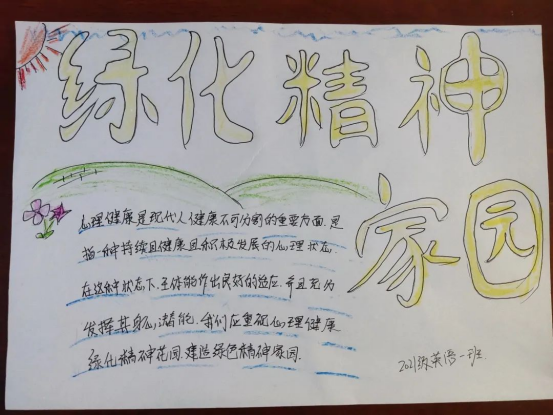 绿化精神
家园
心理健康是现代人健康不可分割的重要方面.是
指一种持续且健康且积极发展的心理状态.
在这种状态下.主体能作出良好的适应.并且充为
发挥其身心潜能.我们应重视心理健康
绿化精神花园.建造绿色精神家园.
2021级英语一班